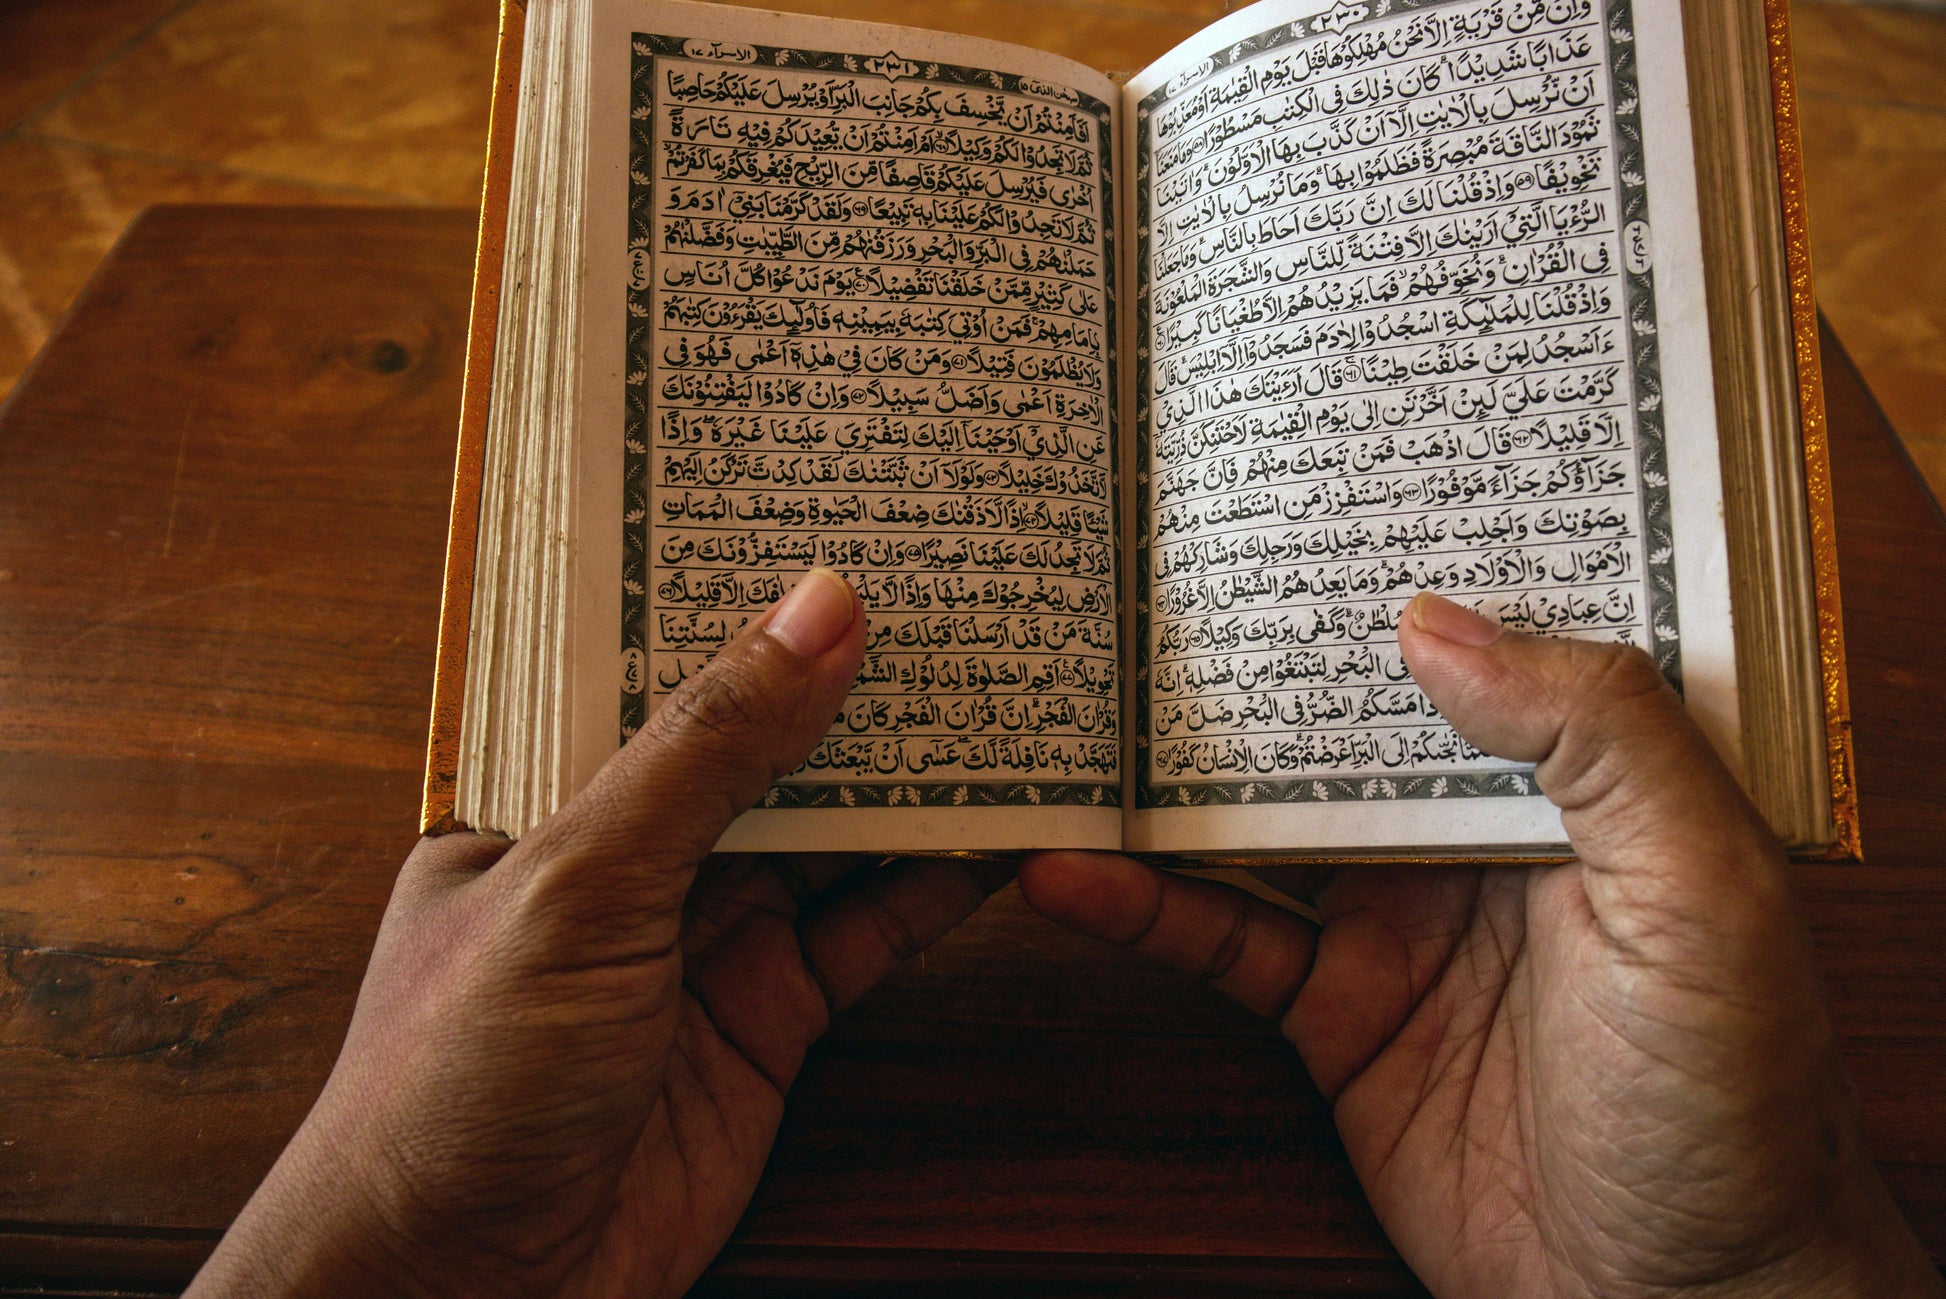 الاسراء ١٧
٢٣٠
وَاِنْ مِّنْ قَرْيَةٍ اِلَّا نَحْنُ مُهْلِكُوْهَا قَبْلَ يَوْمِ الْقِيٰمَةِ اَوْ مُعَذِّبُوْهَا
عَذَابًا شَدِيْدًاۗ كَانَ ذٰلِكَ فِى الْكِتٰبِ مَسْطُوْرًا ٥٨ وَمَا مَنَعَنَآ
اَنْ نُّرْسِلَ بِالْاٰيٰتِ اِلَّآ اَنْ كَذَّبَ بِهَا الْاَوَّلُوْنَۗ وَاٰتَيْنَا
ثَمُوْدَ النَّاقَةَ مُبْصِرَةً فَظَلَمُوْا بِهَاۗ وَمَا نُرْسِلُ بِالْاٰيٰتِ اِلَّا
تَخْوِيْفًا ٥٩ وَاِذْ قُلْنَا لَكَ اِنَّ رَبَّكَ اَحَاطَ بِالنَّاسِۗ وَمَا جَعَلْنَا
الرُّءْيَا الَّتِيْٓ اَرَيْنٰكَ اِلَّا فِتْنَةً لِّلنَّاسِ وَالشَّجَرَةَ الْمَلْعُوْنَةَ
فِى الْقُرْاٰنِۗ وَنُخَوِّفُهُمْۙ فَمَا يَزِيْدُهُمْ اِلَّا طُغْيَانًا كَبِيْرًا ٦٠
وَاِذْ قُلْنَا لِلْمَلٰۤىِٕكَةِ اسْجُدُوْا لِاٰدَمَ فَسَجَدُوْٓا اِلَّآ اِبْلِيْسَۗ قَالَ
ءَاَسْجُدُ لِمَنْ خَلَقْتَ طِيْنًا ٦١ قَالَ اَرَءَيْتَكَ هٰذَا الَّذِيْ
كَرَّمْتَ عَلَيَّ لَىِٕنْ اَخَّرْتَنِ اِلٰى يَوْمِ الْقِيٰمَةِ لَاَحْتَنِكَنَّ ذُرِّيَّتَهٗٓ
اِلَّا قَلِيْلًا ٦٢ قَالَ اذْهَبْ فَمَنْ تَبِعَكَ مِنْهُمْ فَاِنَّ جَهَنَّمَ
جَزَاۤؤُكُمْ جَزَاۤءً مَّوْفُوْرًا ٦٣ وَاسْتَفْزِزْ مَنِ اسْتَطَعْتَ مِنْهُمْ
بِصَوْتِكَ وَاَجْلِبْ عَلَيْهِمْ بِخَيْلِكَ وَرَجِلِكَ وَشَارِكْهُمْ فِى
الْاَمْوَالِ وَالْاَوْلَادِ وَعِدْهُمْۗ وَمَا يَعِدُهُمُ الشَّيْطٰنُ اِلَّا غُرُوْرًا ٦٤
اِنَّ عِبَادِيْ لَيْسَ سُلْطٰنٌۗ وَكَفٰى بِرَبِّكَ وَكِيْلًا ٦٥ رَبُّكُمُ
فِى الْبَحْرِ لِتَبْتَغُوْا مِنْ فَضْلِهٖۗ اِنَّهٗ
مَسَّكُمُ الضُّرُّ فِى الْبَحْرِ ضَلَّ مَنْ
نَجّٰىكُمْ اِلَى الْبَرِّ اَعْرَضْتُمْۗ وَكَانَ الْاِنْسَانُ كَفُوْرًا ٦٧
سبحن الذي ١٥
٢٣١
الاسراء ١٧
اَفَاَمِنْتُمْ اَنْ يَّخْسِفَ بِكُمْ جَانِبَ الْبَرِّ اَوْ يُرْسِلَ عَلَيْكُمْ حَاصِبًا
ثُمَّ لَا تَجِدُوْا لَكُمْ وَكِيْلًا ٦٨ اَمْ اَمِنْتُمْ اَنْ يُّعِيْدَكُمْ فِيْهِ تَارَةً
اُخْرٰى فَيُرْسِلَ عَلَيْكُمْ قَاصِفًا مِّنَ الرِّيْحِ فَيُغْرِقَكُمْ بِمَا كَفَرْتُمْۙ
ثُمَّ لَا تَجِدُوْا لَكُمْ عَلَيْنَا بِهٖ تَبِيْعًا ٦٩ وَلَقَدْ كَرَّمْنَا بَنِيْٓ اٰدَمَ وَ
حَمَلْنٰهُمْ فِى الْبَرِّ وَالْبَحْرِ وَرَزَقْنٰهُمْ مِّنَ الطَّيِّبٰتِ وَفَضَّلْنٰهُمْ
عَلٰى كَثِيْرٍ مِّمَّنْ خَلَقْنَا تَفْضِيْلًا ٧٠ يَوْمَ نَدْعُوْا كُلَّ اُنَاسٍ
بِاِمَامِهِمْۚ فَمَنْ اُوْتِيَ كِتٰبَهٗ بِيَمِيْنِهٖ فَاُولٰۤىِٕكَ يَقْرَءُوْنَ كِتٰبَهُمْ
وَلَا يُظْلَمُوْنَ فَتِيْلًا ٧١ وَمَنْ كَانَ فِيْ هٰذِهٖٓ اَعْمٰى فَهُوَ فِى
الْاٰخِرَةِ اَعْمٰى وَاَضَلُّ سَبِيْلًا ٧٢ وَاِنْ كَادُوْا لَيَفْتِنُوْنَكَ
عَنِ الَّذِيْٓ اَوْحَيْنَآ اِلَيْكَ لِتَفْتَرِيَ عَلَيْنَا غَيْرَهٗۖ وَاِذًا
لَّاتَّخَذُوْكَ خَلِيْلًا ٧٣ وَلَوْلَآ اَنْ ثَبَّتْنٰكَ لَقَدْ كِدْتَّ تَرْكَنُ اِلَيْهِمْ
شَيْـًٔا قَلِيْلًا ٧٤ اِذًا لَّاَذَقْنٰكَ ضِعْفَ الْحَيٰوةِ وَضِعْفَ الْمَمَاتِ
ثُمَّ لَا تَجِدُ لَكَ عَلَيْنَا نَصِيْرًا ٧٥ وَاِنْ كَادُوْا لَيَسْتَفِزُّوْنَكَ مِنَ
الْاَرْضِ لِيُخْرِجُوْكَ مِنْهَا وَاِذًا لَّا اِلَّا قَلِيْلًا ٧٦
سُنَّةَ مَنْ قَدْ اَرْسَلْنَا قَبْلَكَ مِنْ لِسُنَّتِنَا
تَحْوِيْلًا ٧٧ اَقِمِ الصَّلٰوةَ لِدُلُوْكِ
وَقُرْاٰنَ الْفَجْرِۗ اِنَّ قُرْاٰنَ الْفَجْرِ كَانَ
فَتَهَجَّدْ بِهٖ نَافِلَةً لَّكَۖ عَسٰٓى اَنْ يَّبْعَثَكَ